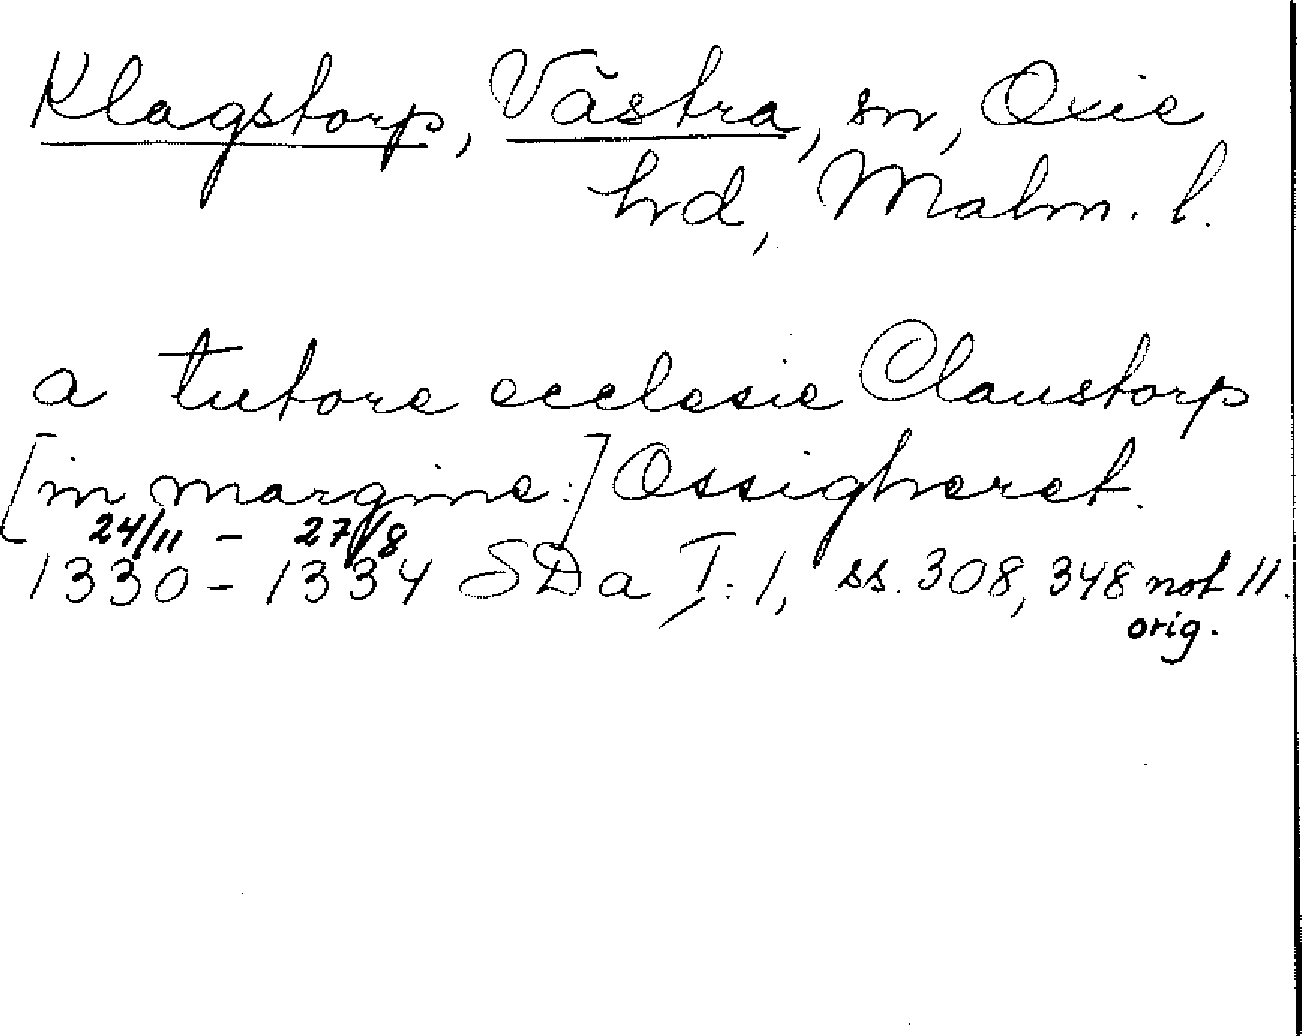 Klagstorp, Västra, sn, Oxie
hrd, Malm. l.
a tutore ecclesie Claustorp
[in margine:] Ossigheret.
24/11 - 27/8
1330 - 1334 SDa I: 1, ss. 308, 348 not 11.
orig.